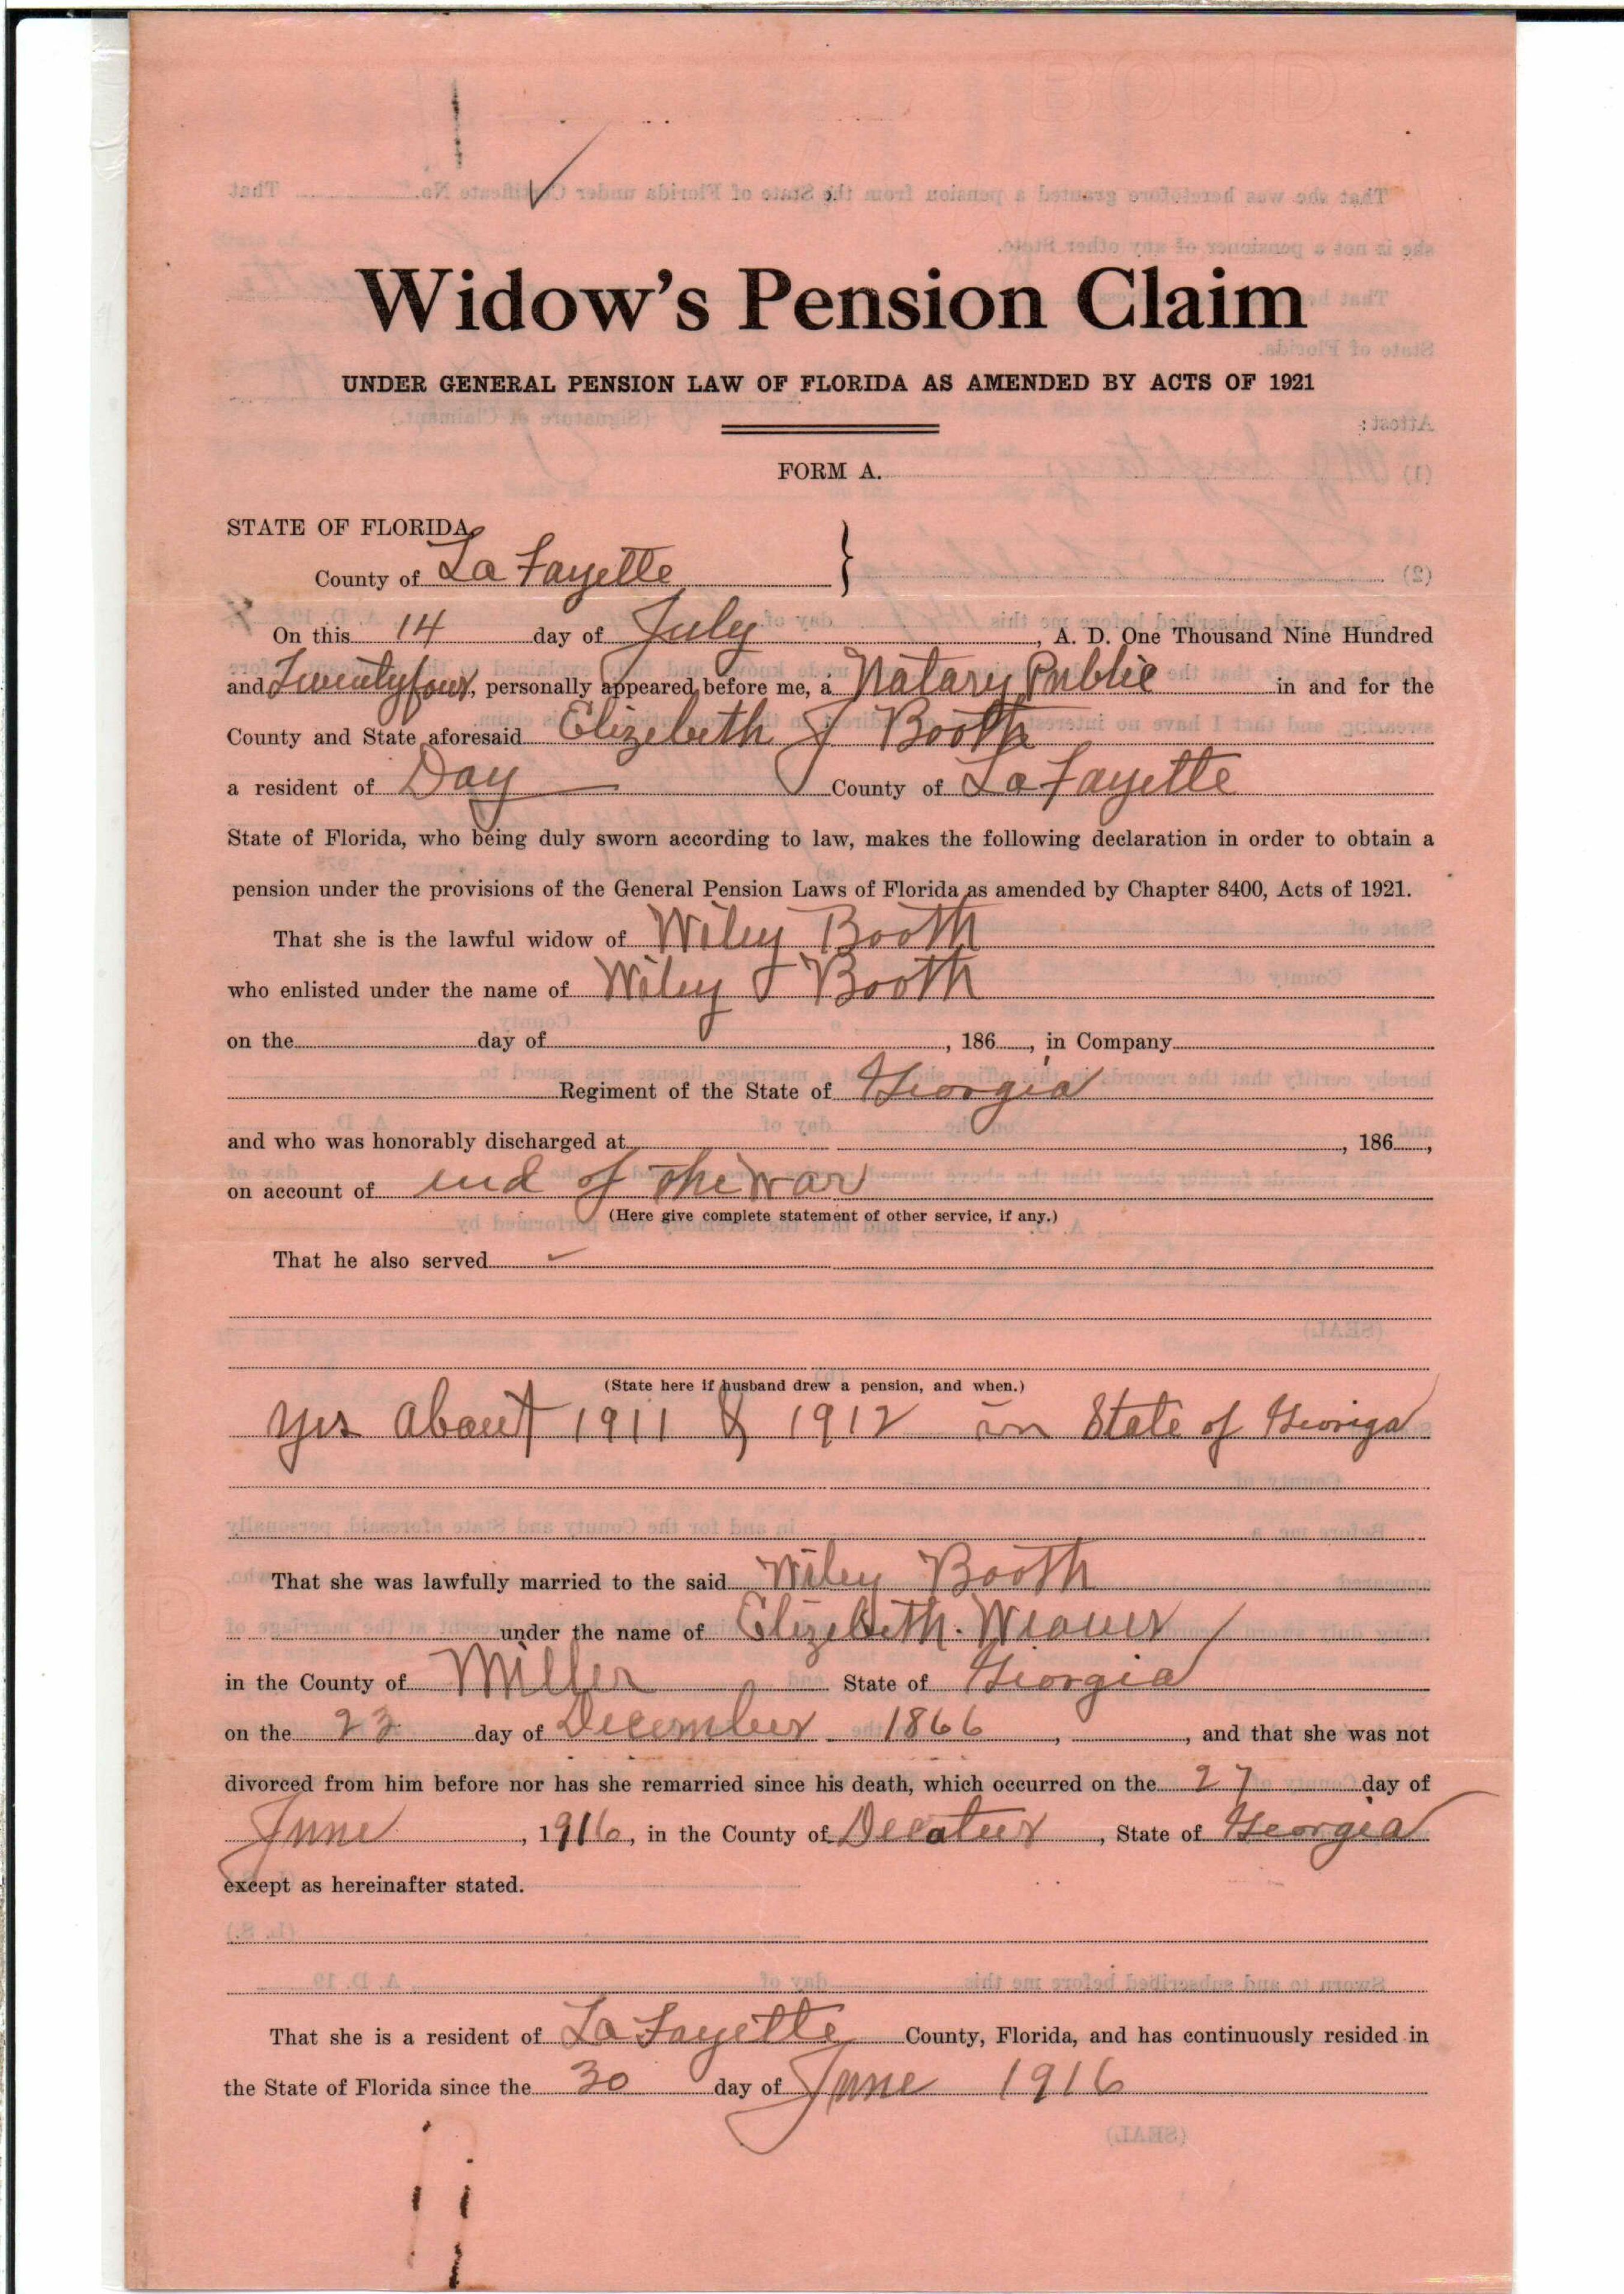 Widow's Pension Claim
UNDER GENERAL PENSION LAW OF FLORIDA AS AMENDED BY ACTS OF 1921
FORM A.
STATE OF FLORIDA,
County of La Fayette }
On this 14 day of July, A. D. One Thousand Nine Hundred
and Twentyfour, personally appeared before me, a Natary Public in and for the
County and State aforesaid Elizebeth J Booth
a resident of Day County of La Fayette
State of Florida, who being duly sworn according to law, makes the following declaration in order to obtain a
pension under the provisions of the General Pension Laws of Florida as amended by Chapter 8400, Acts of 1921.
That she is the lawful widow of Wiley Booth
who enlisted under the name of Wiley J Booth
on the day of , 186 , in Company
Regiment of the State of Georgia
and who was honorably discharged at , 186 ,
on account of end of the war
(Here give complete statement of other service, if any.)
That he also served
(State here if husband drew a pension, and when.)
yes about 1911 & 1912 in State of Georiga
That she was lawfully married to the said Wiley Booth
under the name of Elizebeth. Weaver
in the County of Miller State of Georgia
on the 23 day of December 1866, , and that she was not
divorced from him before nor has she remarried since his death, which occurred on the 27 day of
June, 1916, in the County of Decatur, State of Georgia
except as hereinafter stated.
That she is a resident of La Fayette County, Florida, and has continuously resided in
the State of Florida since the 30 day of June 1916